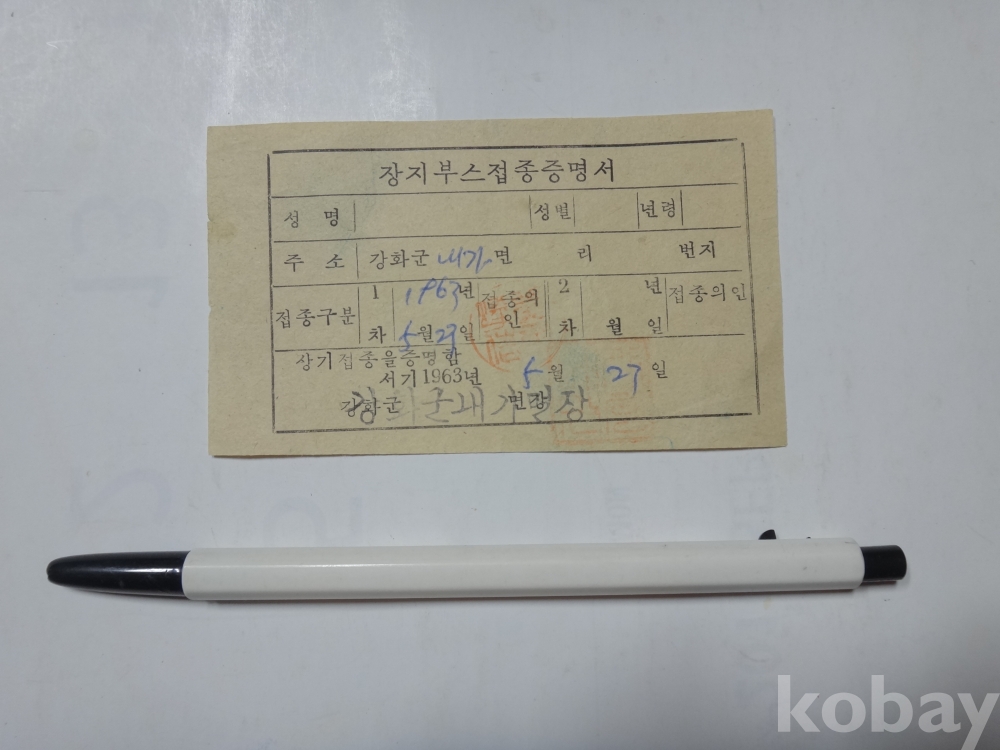 장지부스접종증명서
성 명 성별 년령
주 소 강화군 내가면 리 번지
접종구분 1차 1963년 5월 23일 접종의인 2차 년 월 일 접종의인
상기접종을증명함
서기1963년 5월 23일
강화군 면장
강화군내가면장
kobay